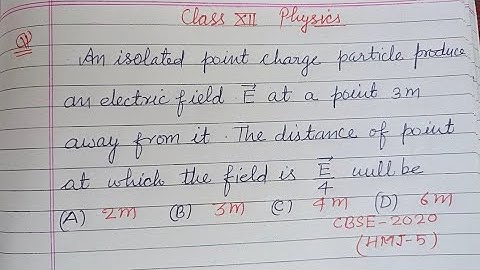 Class XII Physics
Q
An isolated point charge particle produce
an electric field E⃗ at a point 3m
away from it. The distance of point
at which the field is E⃗/4 will be
(A) 2m (B) 3m (C) 4m (D) 6m
CBSE-2020
(HMJ-5)